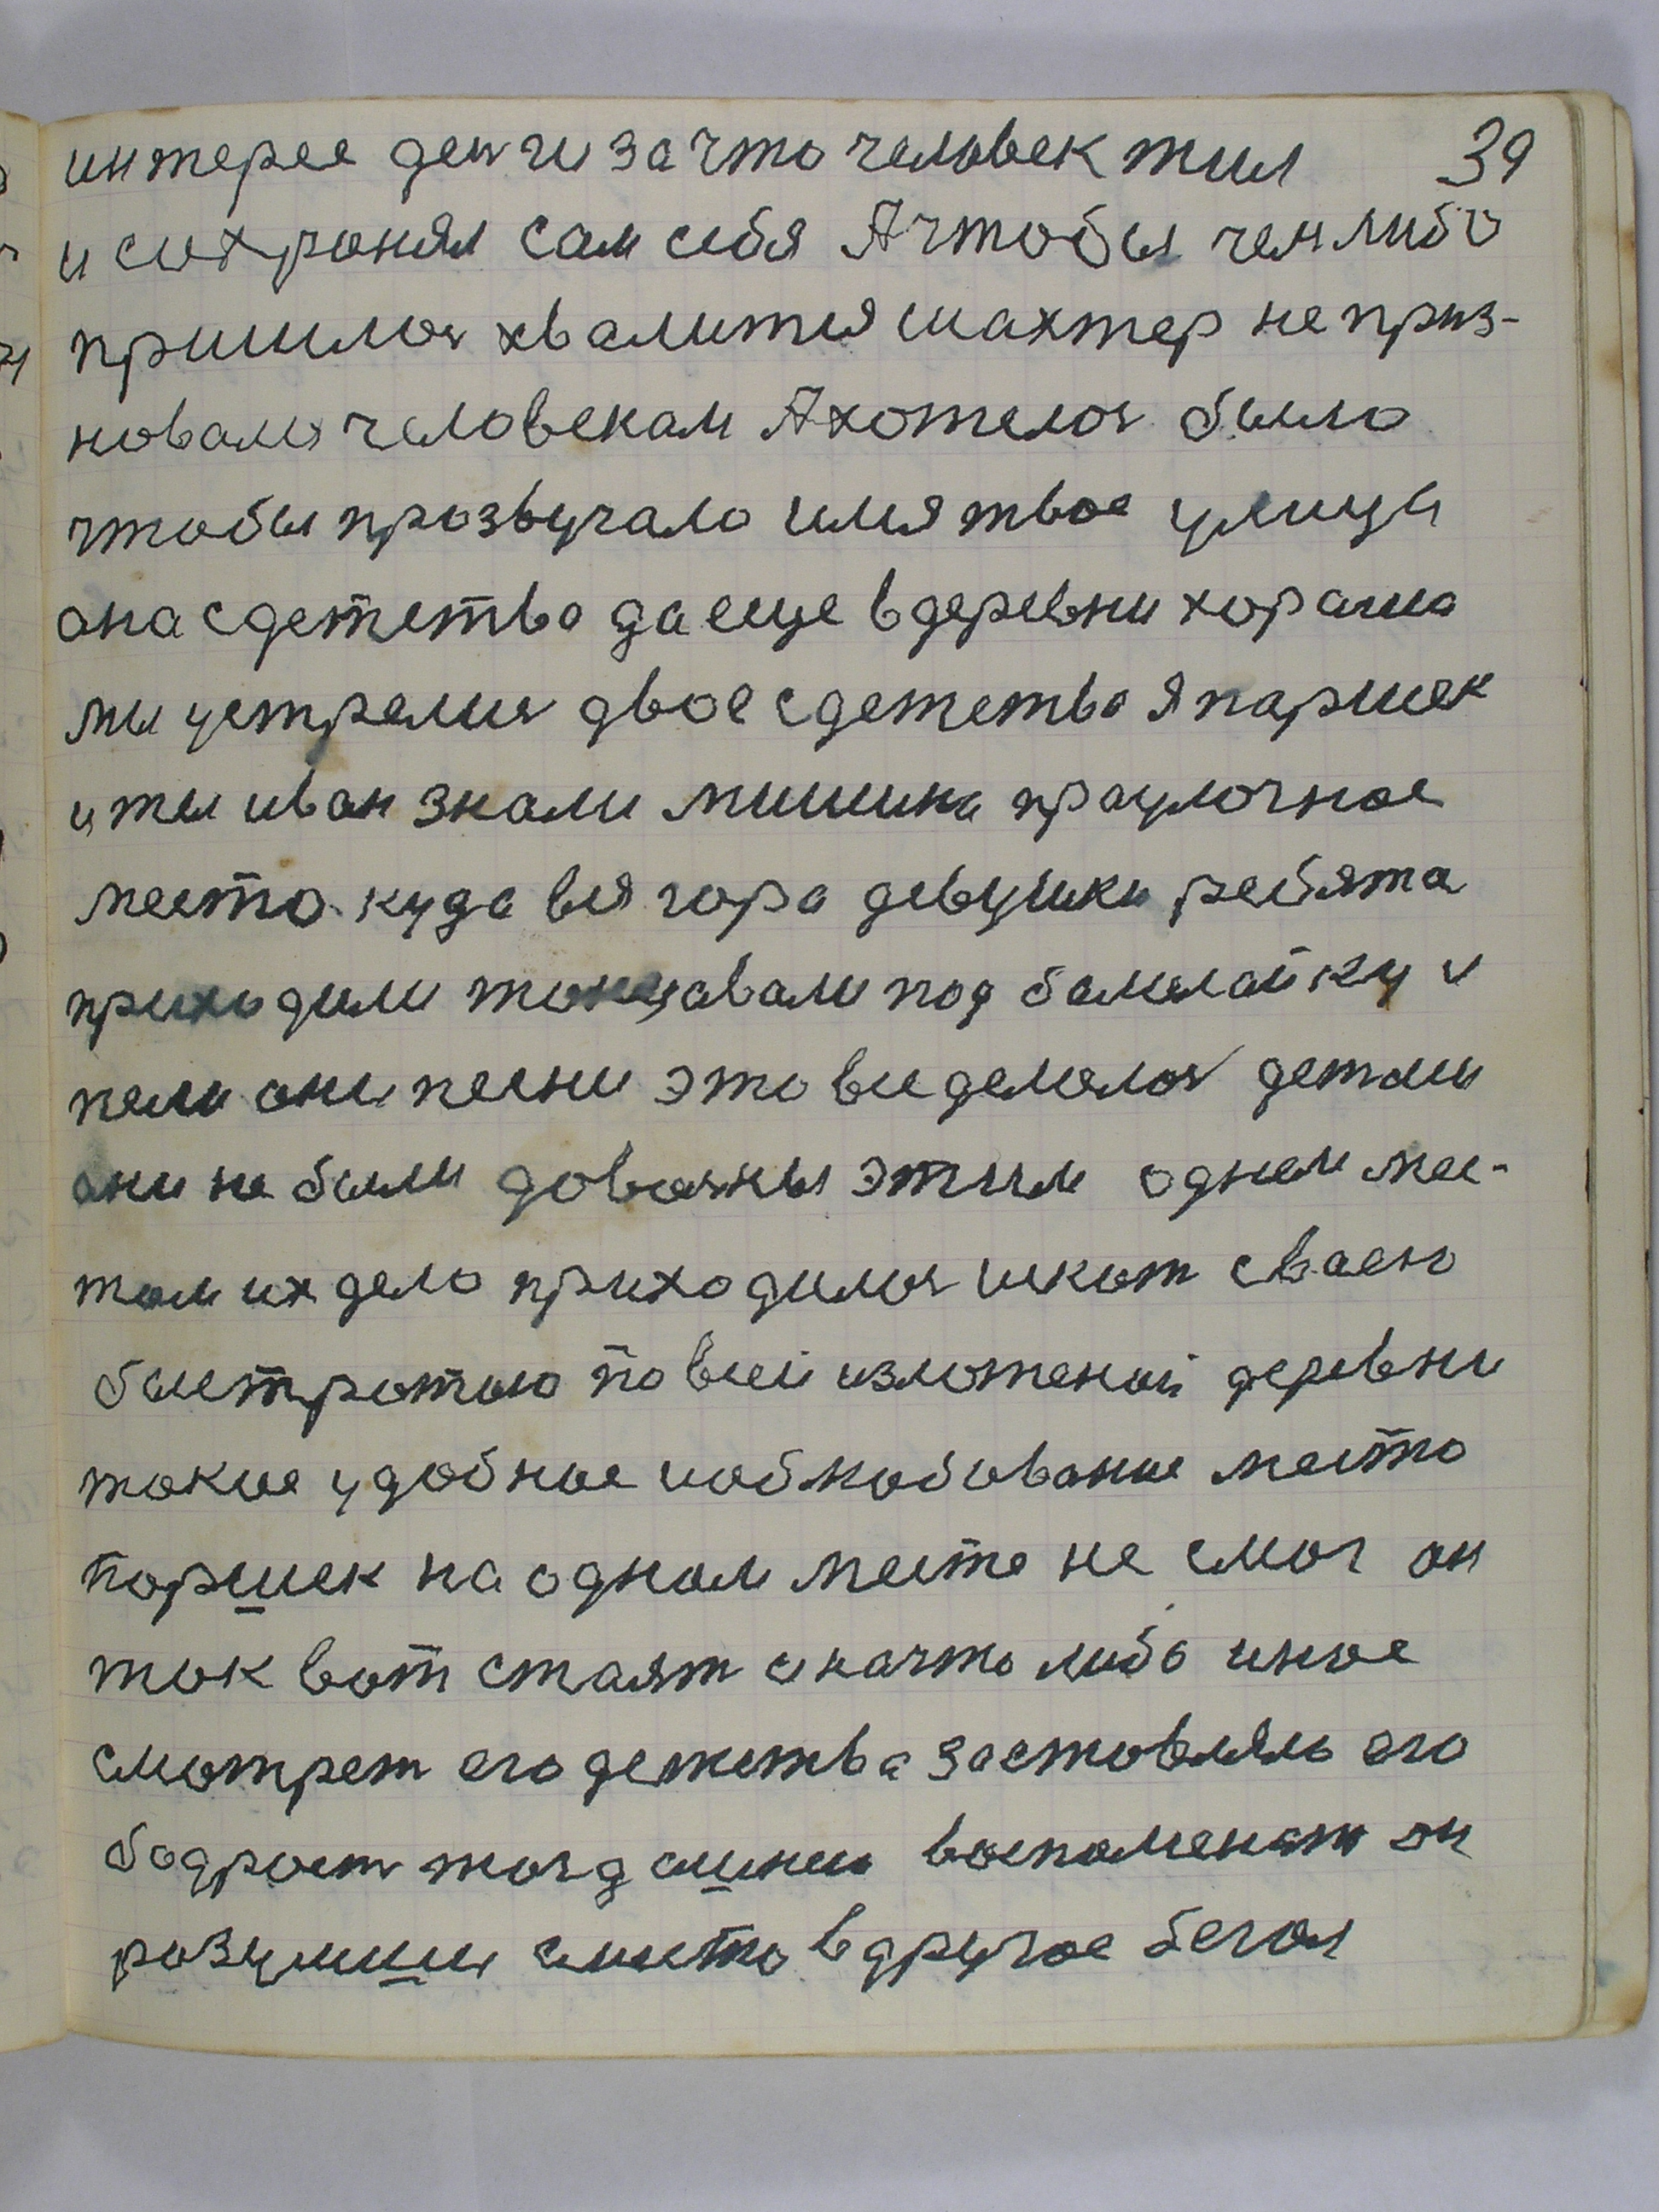 интерес денги за что человек жил 39
и сохранял сам себя А чтобы чем либо
пришлос хвалится шахтер не приз-
новался человекам А хотелос было
чтобы прозвучало имя твое улица
она с детства да еще в деревни хорошо
мы устрелис двое с детства я паршек
и ты иван знали мишина праулочное
место куда вся гора девушки ребята
приходили тонцавали под балалайку и
пели они песни это все делалос детями
они не были довольны этим однем мес-
том их дело приходилос искат сваею
быстротою по всей изложеной деревни
такое удобное и облюбование место
поршек на одном месте не смог он
ток вот стаят и начто либо иное
смотрет его детства застовляло его
бодрост тогдашнии воспоменат он
разулшис с места в другое бегал